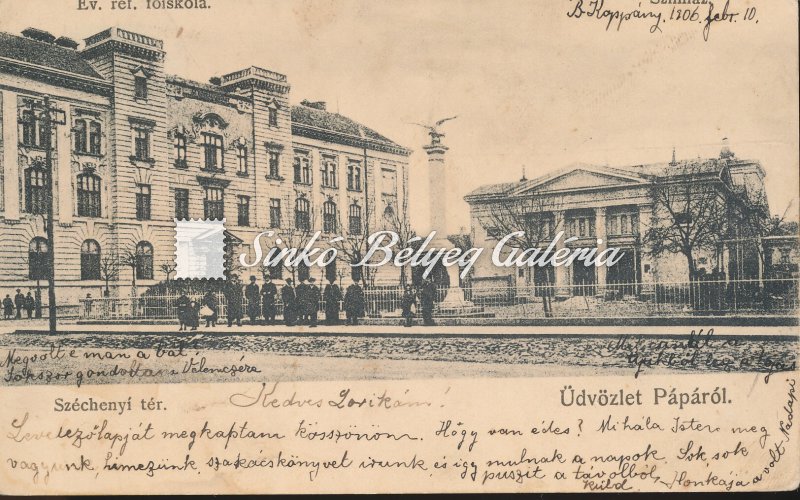 Ev. ref. főiskola.
Színház.
B. Koppány. 1906 febr. 10.
Sinkó Bélyeg Galéria
Megvolt e man a bál
Sokszor gondoltam Velenczére
Széchenyi tér.
Üdvözlet Pápáról.
Kedves Lorikám!
Levelezőlapját megkaptam köszönöm. Hogy van édes? Mi hála Isten meg
vagyunk, himezünk szakácskönyvet irunk és igy mulnak a napok. Sok, sok
puszit a távolból küld Honkája
a volt